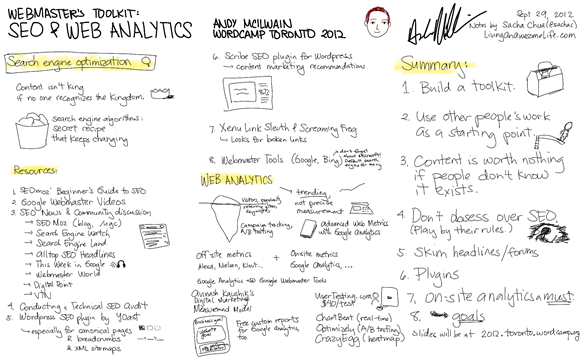 WEBMASTER'S TOOLKIT:
SEO & WEB ANALYTICS
ANDY MCILWAIN
WORDCAMP TORONTO 2012
Sept 29, 2012
Notes by Sacha Chua (@sachac)
LivingAnAwesomeLife.com
Search engine optimization
Content isn't king
if no one recognizes the Kingdom.
search engine algorithms:
secret recipe
that keeps changing
Resources:
1. SEOmoz' Beginner's Guide to SEO
2. Google Webmaster Videos
3. SEO News & Community discussion
→ SEO Moz (blog, )
→ Search Engine Watch
→ Search Engine Land
→ Alltop SEO Headlines
→ This Week in Google
→ Webmaster World
→ Digital Point
→ V7N
4. Conducting a Technical SEO Audit
5. Wordpress SEO plugin by Yoast
→ especially for canonical pages
& breadcrumbs
& XML sitemaps
6. Scribe SEO plugin for Wordpress
→ content marketing recommendations
7. Xenu Link Sleuth & Screaming Frog
→ Looks for broken links
8. Webmaster Tools (Google, Bing)
don't forget
about Microsoft!
Default search
engine for many
WEB ANALYTICS
Visitors, popularity
referring sites,
keywords
Campaign tracking,
A/B testing
trending
not precise
measurement
Advanced Web Metrics
with Google Analytics
Off-site metrics
Alexa, Nielsen, Klout...
+
Onsite metrics
Google Analytics, ...
Google Analytics and Google Webmaster Tools
Avinash Kaushik's
Digital Marketing
Measurement Model
Business goal
Free custom reports
for Google analytics,
too
UserTesting.com
$40/test
ChartBeat (realtime)
Optimizely (A/B testing)
CrazyEgg (heatmap)
Summary:
1. Build a toolkit.
2. Use other people's work
as a starting point.
3. Content is worth nothing
if people don't know
it exists.
4. Don't obsess over SEO.
(Play by their rules.)
5. Skim headlines/forums
6. Plugins
7. On-site analytics a must.
8. → goals
Slides will be at 2012.toronto.wordcamp.org